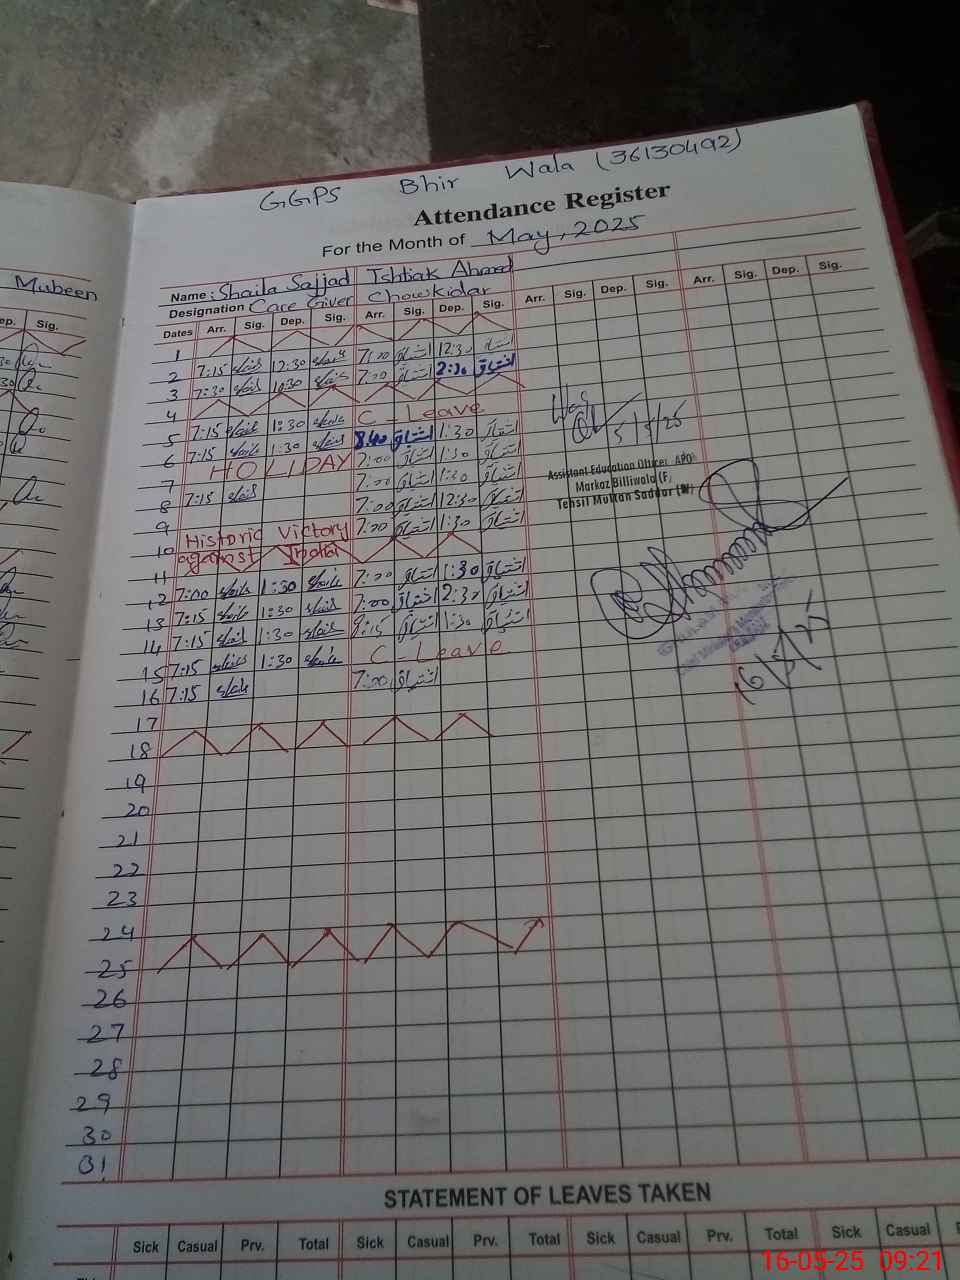 GGPS Bhir Wala (36130492)
Attendance Register
For the Month of May, 2025
Mubeen
Name: Shaila Sajjad Ishtiak Ahmed
Designation Care Giver Chowkidar
Dates Arr. Sig. Dep. Sig. Arr. Sig. Dep. Sig. Arr. Sig. Dep. Sig. Arr. Sig. Dep. Sig.
ep. Sig.
1
2 7:15 12:30 7:00 اشتیاق 12:30 اشتیاق
3 7:30 10:30 7:00 اشتیاق 2:30 اشتیاق
4
5 7:15 1:30 C-Leave
6 7:15 1:30 8:40 اشتیاق 1:30 اشتیاق
7 HOLIDAY 7:00 اشتیاق 1:30 اشتیاق
8 7:15 7:00 اشتیاق 1:30 اشتیاق
9 7:00 اشتیاق 12:30 اشتیاق
10 Historic Victory 7:00 اشتیاق 1:30 اشتیاق
against India
11
12 7:00 1:30 7:00 اشتیاق 1:30 اشتیاق
13 7:15 1:30 7:00 اشتیاق 2:30 اشتیاق
14 7:15 1:30 اشتیاق 1:30 اشتیاق
15 7:15 1:30 C-Leave
16 7:15 7:00 اشتیاق
17
18
19
20
21
22
23
24
25
26
27
28
29
30
31
5/5/25
Assistant Education Officer
Markaz Billiwala (F)
Tehsil Multan Saddar
16/5/25
STATEMENT OF LEAVES TAKEN
Sick Casual Prv. Total Sick Casual Prv. Total Sick Casual Prv. Total Sick Casual
16-05-25 09:21